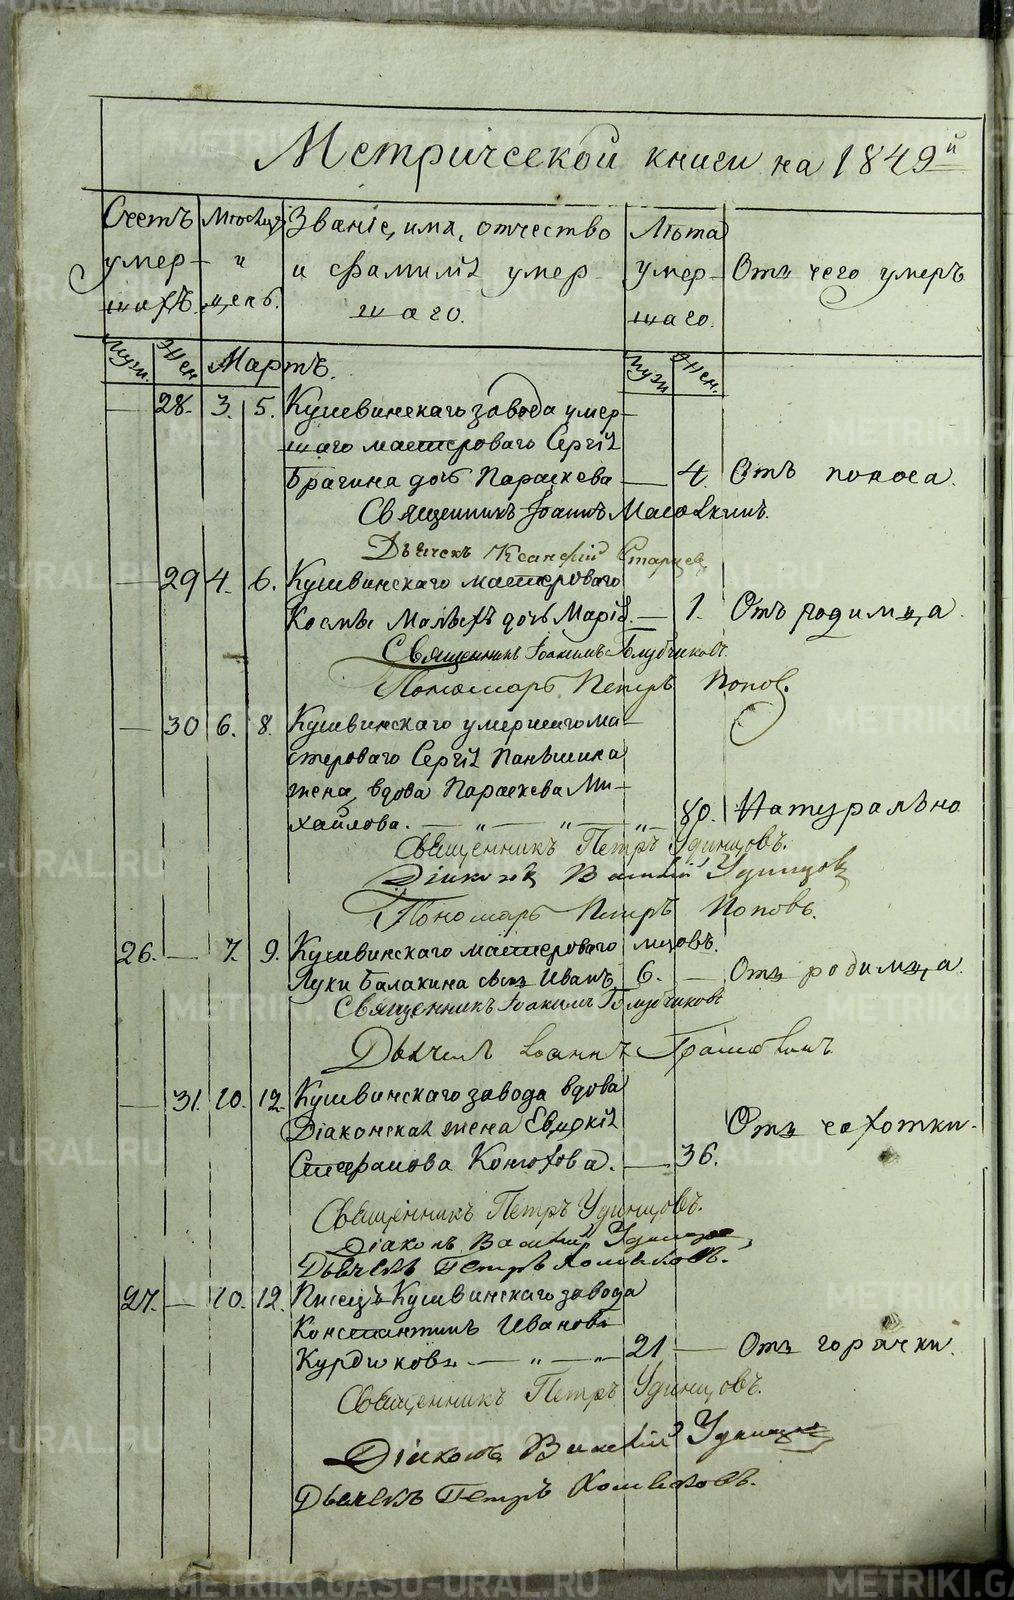 Метрической книги на 1849й
Счетъ Мѣсяцъ Званіе, имя, отчество Лѣта
умер- и и фамилія умер- умер- Отъ чего умеръ
шихъ. день. шаго. шаго.
Муж. Жен. Мартъ. Муж. Жен.
— 28. 3. 5. Кушвинскаго завода умер-
шаго мастероваго Сергія
Брагина дочь Параскева — 4. Отъ поноса.
Священникъ Іоаннъ
Дьячекъ Ксанфій Старцев
— 29 4. 6. Кушвинскаго мастероваго
Космы дочь Марія. — 1. Отъ родимца.
Священникъ Іоакимъ Голубчиковъ.
Пономарь Петръ Попов.
— 30 6. 8. Кушвинскаго умершаго ма-
стероваго Сергія Паньшина
жена, вдова Параскева Ми-
хайлова. — „ — „ — „ — 80. Натурально
Священникъ Петръ Удинцовъ.
Діаконъ Василій Удинцовъ
Пономарь Петръ Поповъ.
26. — 7. 9. Кушвинскаго мастероваго
Луки Балакина сынъ Иванъ 6. — Отъ родимца.
Священникъ Іоакимъ Голубчиковъ
Дьячекъ Іоаннъ
— 31. 10. 12. Кушвинскаго завода вдова
Діаконская жена Евдокія Отъ чахотки.
Стефанова Конюхова. — 36.
Священникъ Петръ Удинцовъ.
Діаконъ Василій Удинцов
Дьячекъ Петръ Хомяковъ.
27. — 10. 12. Писецъ Кушвинскаго завода
Константинъ Ивановъ
Курдиковъ. — „ — „ 21 — Отъ горячки.
Священникъ Петръ Удинцовъ.
Діаконъ Василій Удинцов
Дьячекъ Петръ Хомяковъ.
METRIKI.GASO-URAL.RU